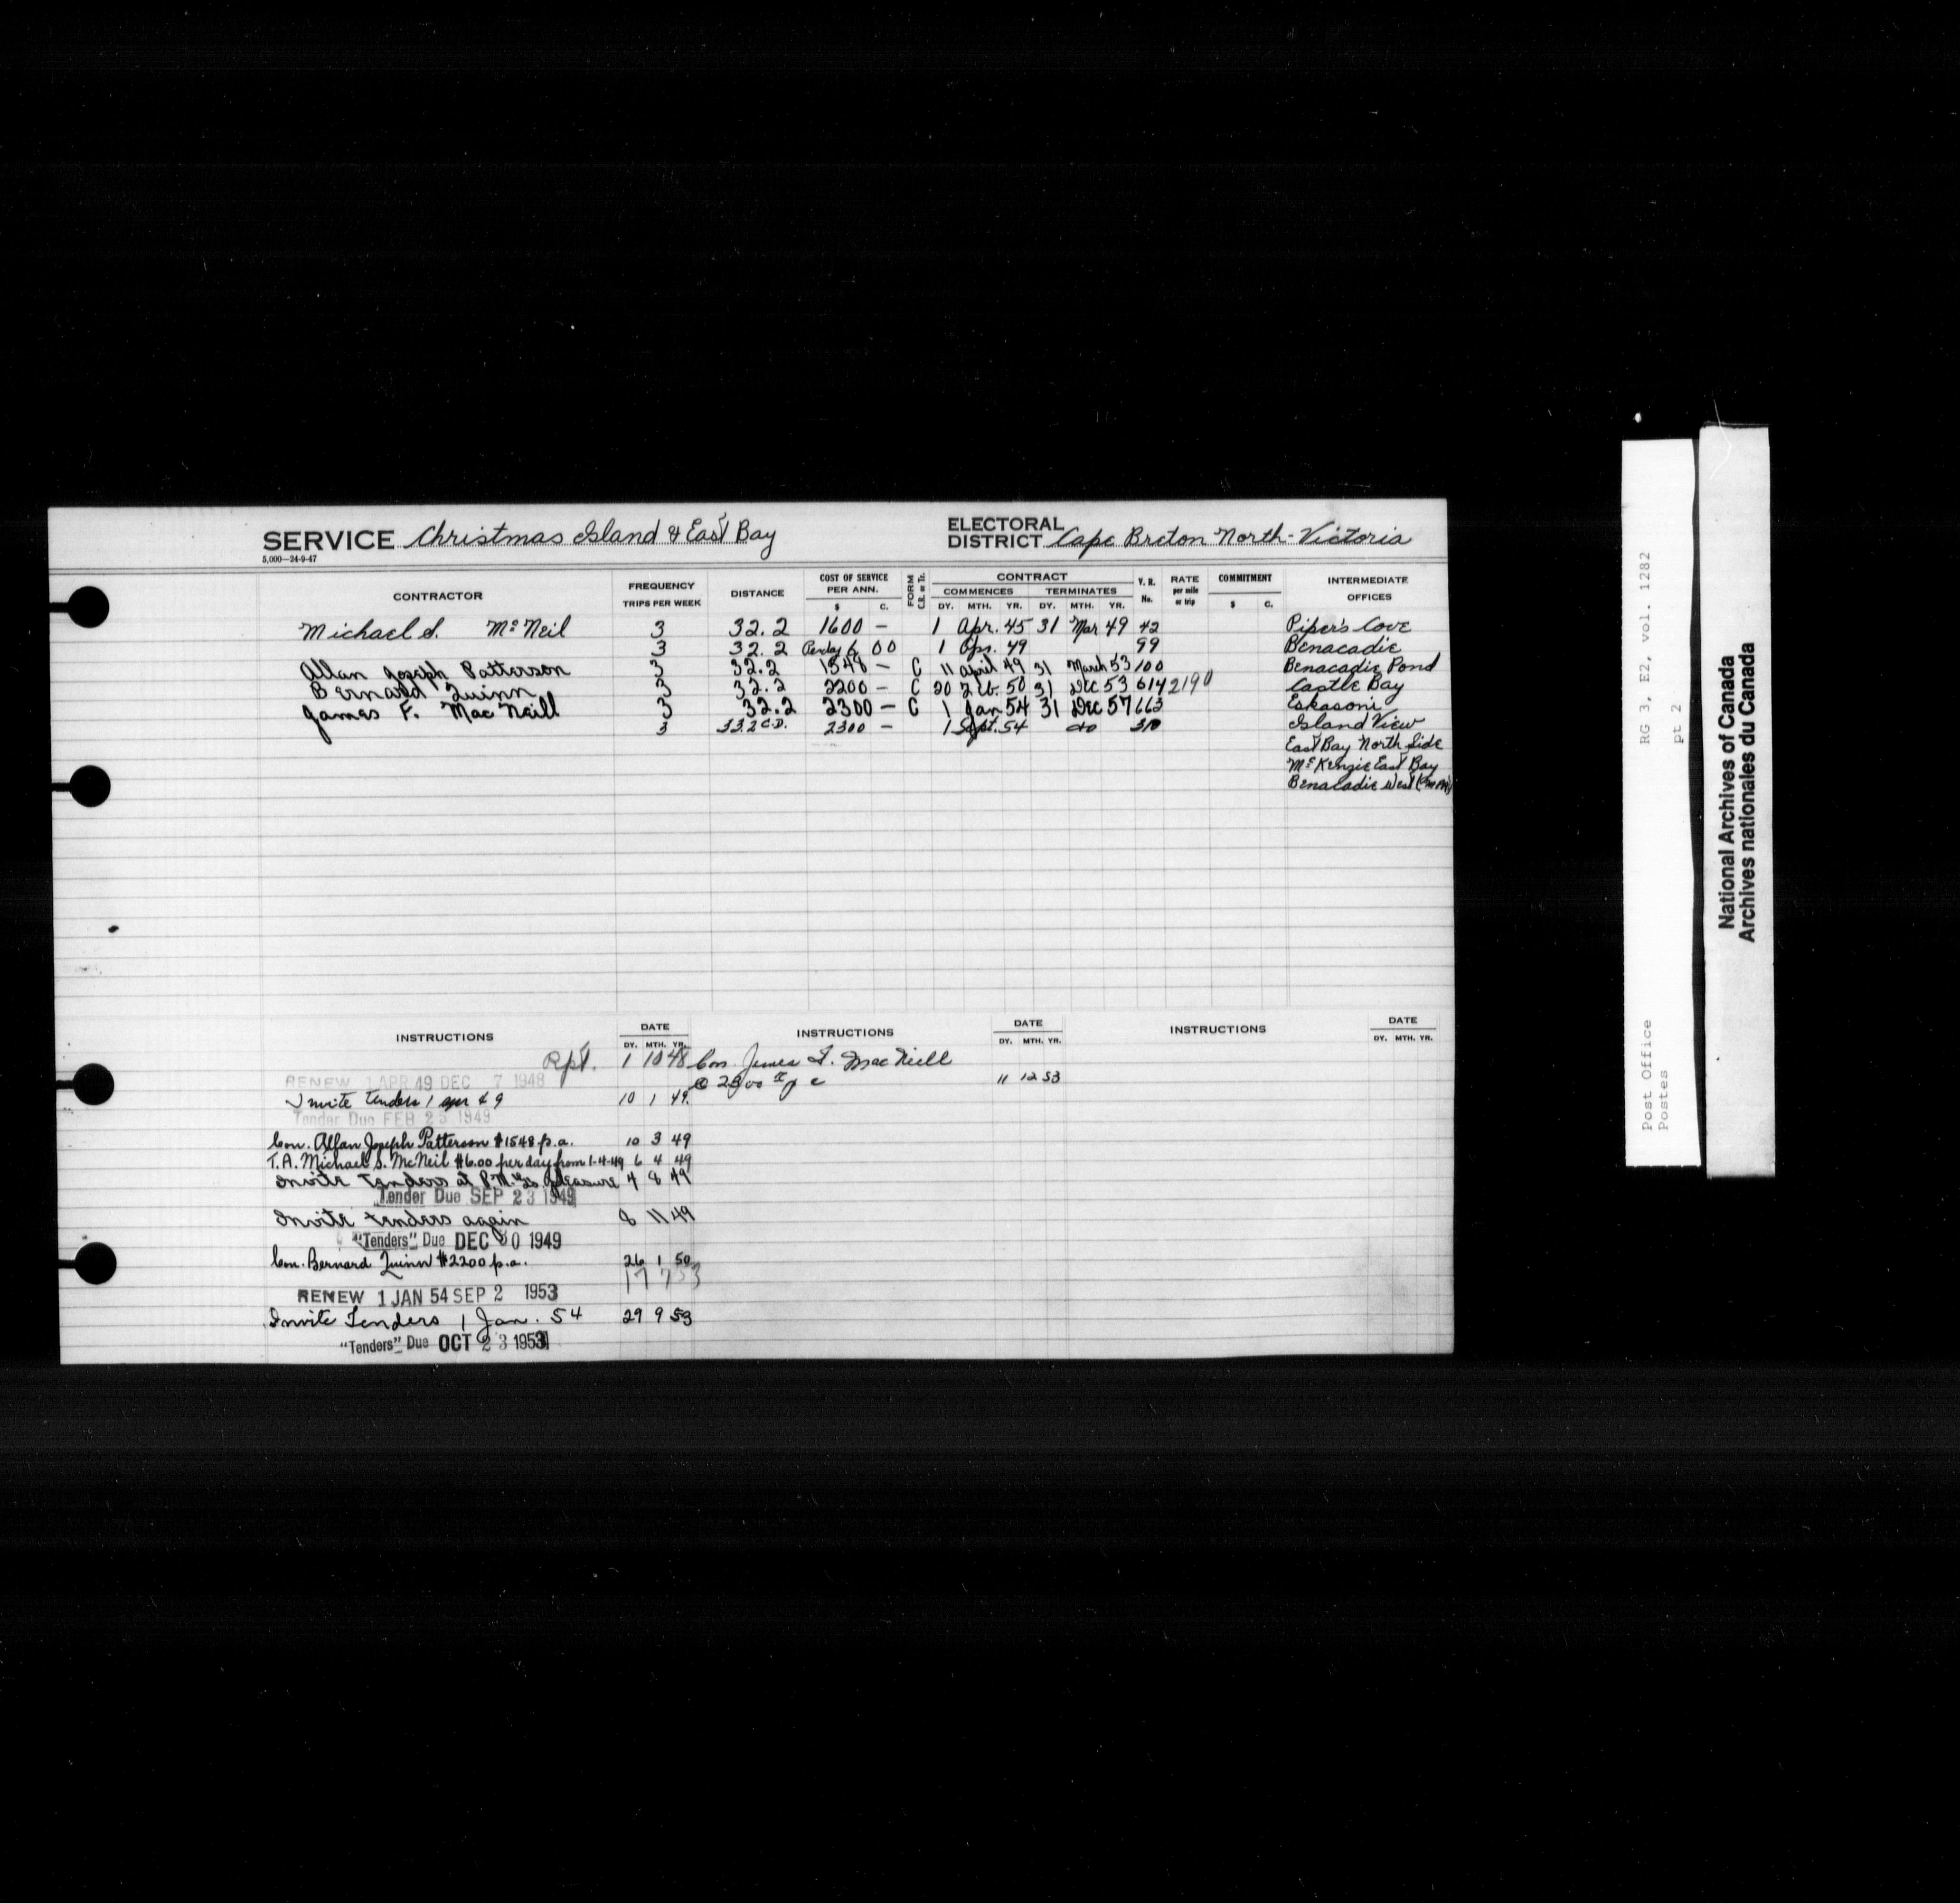 SERVICE Christmas Island & East Bay
ELECTORAL DISTRICT Cape Breton North-Victoria
5,000—24-9-47
CONTRACTOR FREQUENCY TRIPS PER WEEK DISTANCE COST OF SERVICE PER ANN. $ C. FORM C.R. or Tr. CONTRACT COMMENCES DY. MTH. YR. TERMINATES DY. MTH. YR. V. R. No. RATE per mile or trip COMMITMENT $ C. INTERMEDIATE OFFICES
Michael S. McNeil 3 32.2 1600 — 1 Apr. 45 31 Mar 49 42 Piper's Cove
3 32.2 Per day 6 00 1 Apr. 49 99 Benacadie
Allan Joseph Patterson 3 32.2 1548 — C 11 April 49 31 March 53 100 Benacadie Pond
Bernard Quinn 3 32.2 2200 — C 20 Feb. 50 31 Dec 53 614 2190 Castle Bay
James F. MacNeill 3 32.2 2300 — C 1 Jan 54 31 Dec 57 663 Eskasoni
3 33.2 C.D. 2300 — 1 Sept. 54 do 310 Island View
East Bay North Side
McKenzie East Bay
Benacadie West
INSTRUCTIONS DATE DY. MTH. YR. INSTRUCTIONS DATE DY. MTH. YR. INSTRUCTIONS DATE DY. MTH. YR.
Rpt. 1 10 48
RENEW 1 APR 49 DEC 7 1948
Invite Tenders 1 apr 49 10 1 49
Tender Due FEB 25 1949
Con. Allan Joseph Patterson $1548 p.a. 10 3 49
T.A. Michael S. McNeil $6.00 per day from 1-4-49 6 4 49
Invite Tenders at P.M.G's pleasure 4 8 49
Tender Due SEP 23 1949
Invite tenders again 8 11 49
"Tenders" Due DEC 30 1949
Con. Bernard Quinn $2200 p.a. 26 1 50
17 7 53
RENEW 1 JAN 54 SEP 2 1953
Invite Tenders 1 Jan. 54 29 9 53
"Tenders" Due OCT 23 1953
Con James F. MacNeill
@ 2300 11 12 53
RG 3, E2, vol. 1282
pt 2
Post Office
Postes
National Archives of Canada
Archives nationales du Canada